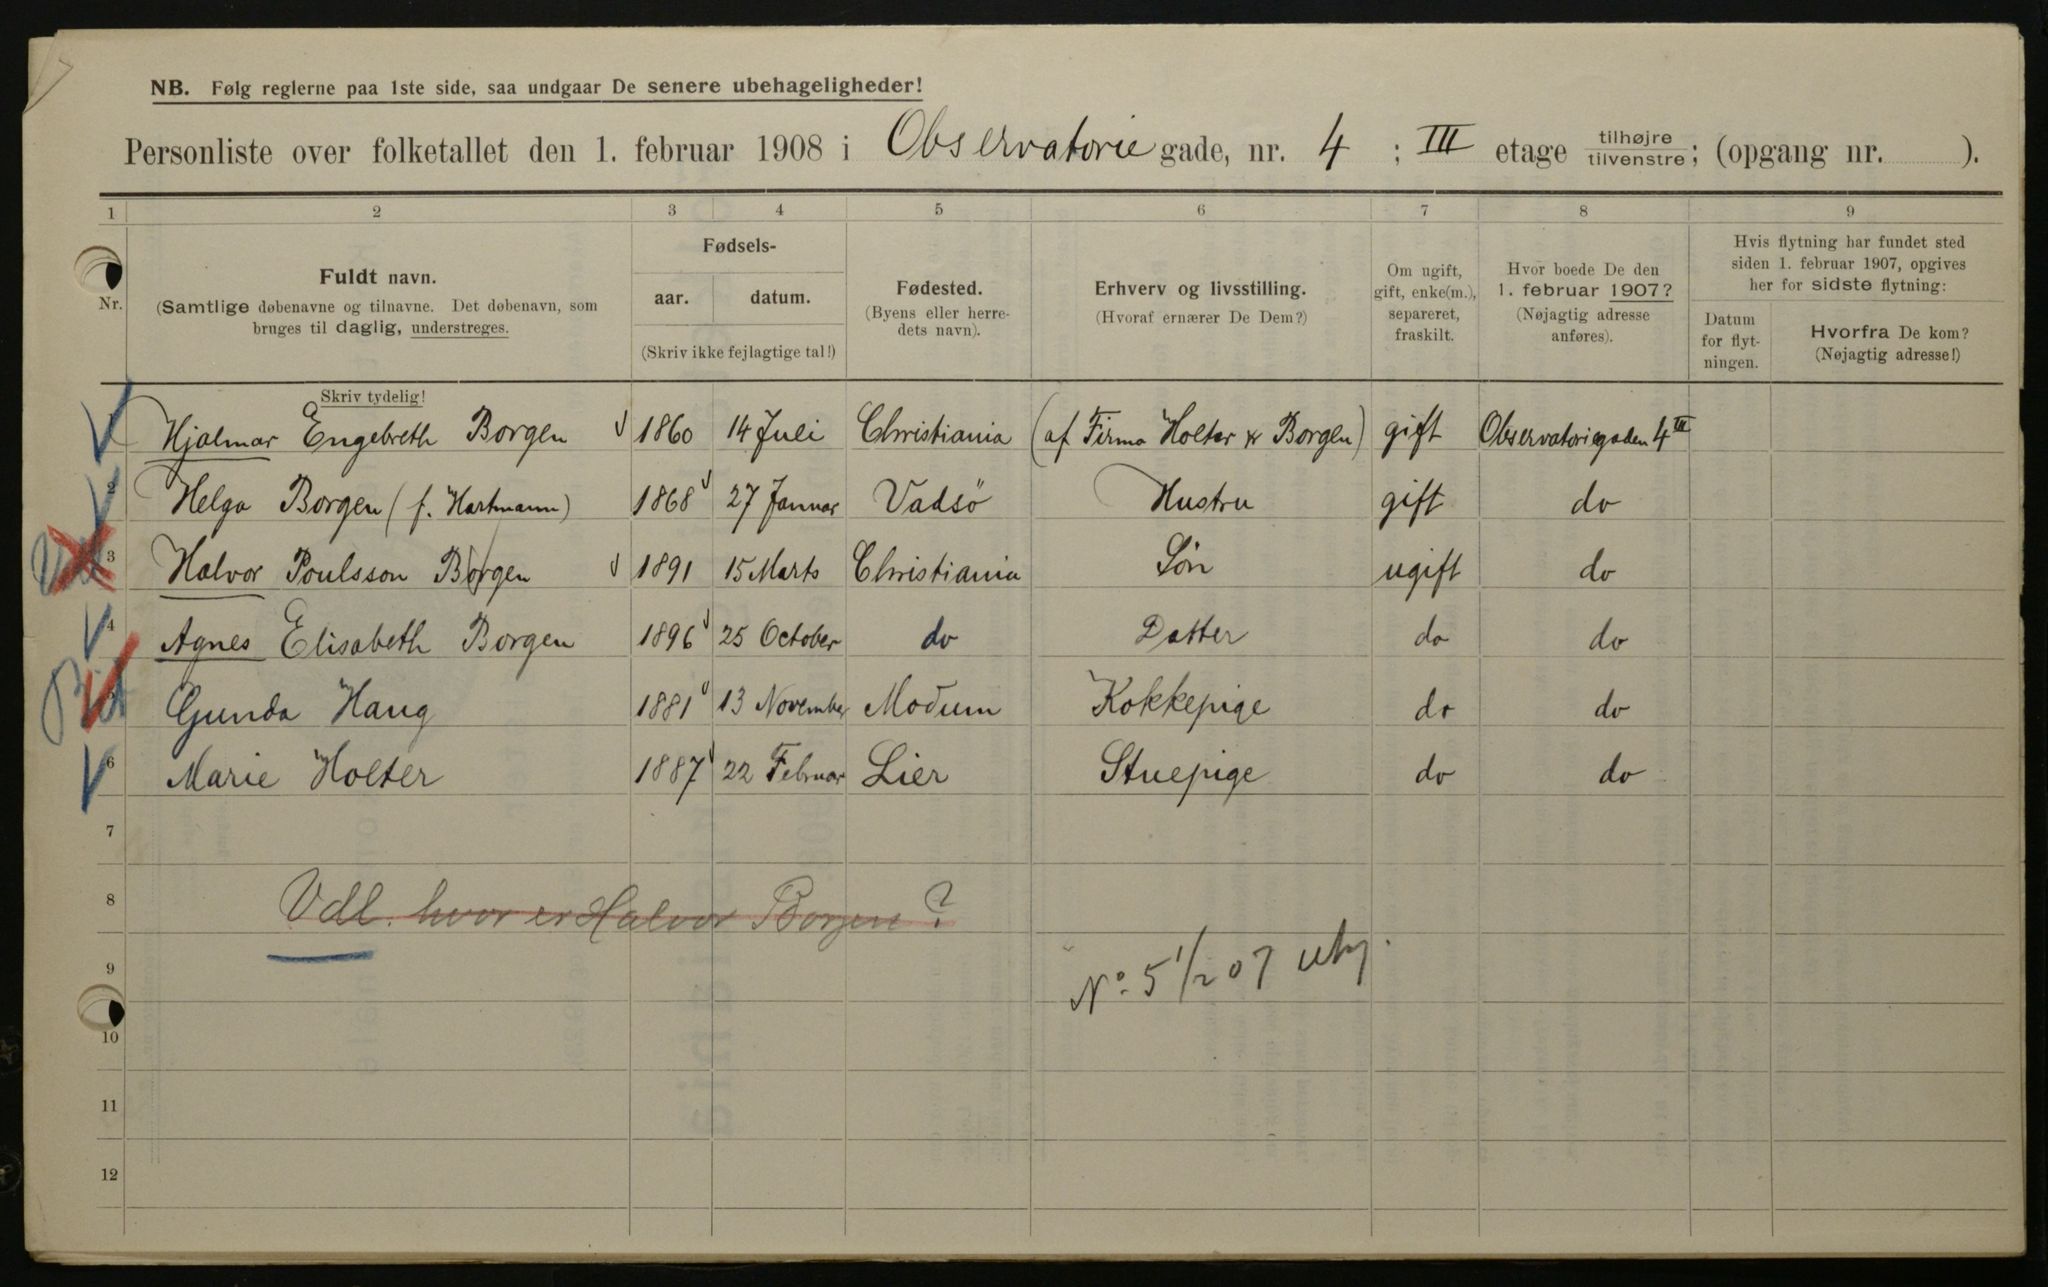 NB. Følg reglerne paa 1ste side, saa undgaar De senere ubehageligheder!
Personliste over folketallet den 1. februar 1908 i Observatorie gade, nr. 4 ; III etage tilhøjre tilvenstre; (opgang nr. ).
1 2 3 4 5 6 7 8 9
Nr.
Fuldt navn.
(Samtlige døbenavne og tilnavne. Det døbenavn, som
bruges til daglig, understreges.
Fødsels-
aar. datum.
(Skriv ikke fejlagtige tal!)
Fødested.
(Byens eller herre-
dets navn).
Erhverv og livsstilling.
(Hvoraf ernærer De Dem?)
Om ugift,
gift, enke(m.),
separeret,
fraskilt.
Hvor boede De den
1. februar 1907?
(Nøjagtig adresse
anføres).
Hvis flytning har fundet sted
siden 1. februar 1907, opgives
her for sidste flytning:
Datum
for flyt-
ningen.
Hvorfra De kom?
(Nøjagtig adresse!)
Skriv tydelig!
1 Hjalmar Engebreth Borgen 1860 14 Juli Christiania (af Firma Holter & Borgen) gift Observatoriegaden 4 III
2 Helga Borgen (f. Hartmann) 1868 27 Januar Vadsö Hustru gift do
3 Halvor Poulsson Borgen 1891 15 Marts Christiania Søn ugift do
4 Agnes Elisabeth Borgen 1896 25 October do Datter do do
Gunda Haug 1881 13 November Modum Kokkepige do do
6 Marie Holter 1887 22 Februar Lier Stuepige do do
7
8 Vdl. hvor er Halvor Borgen?
9
No. 5 1/2 07
10
11
12